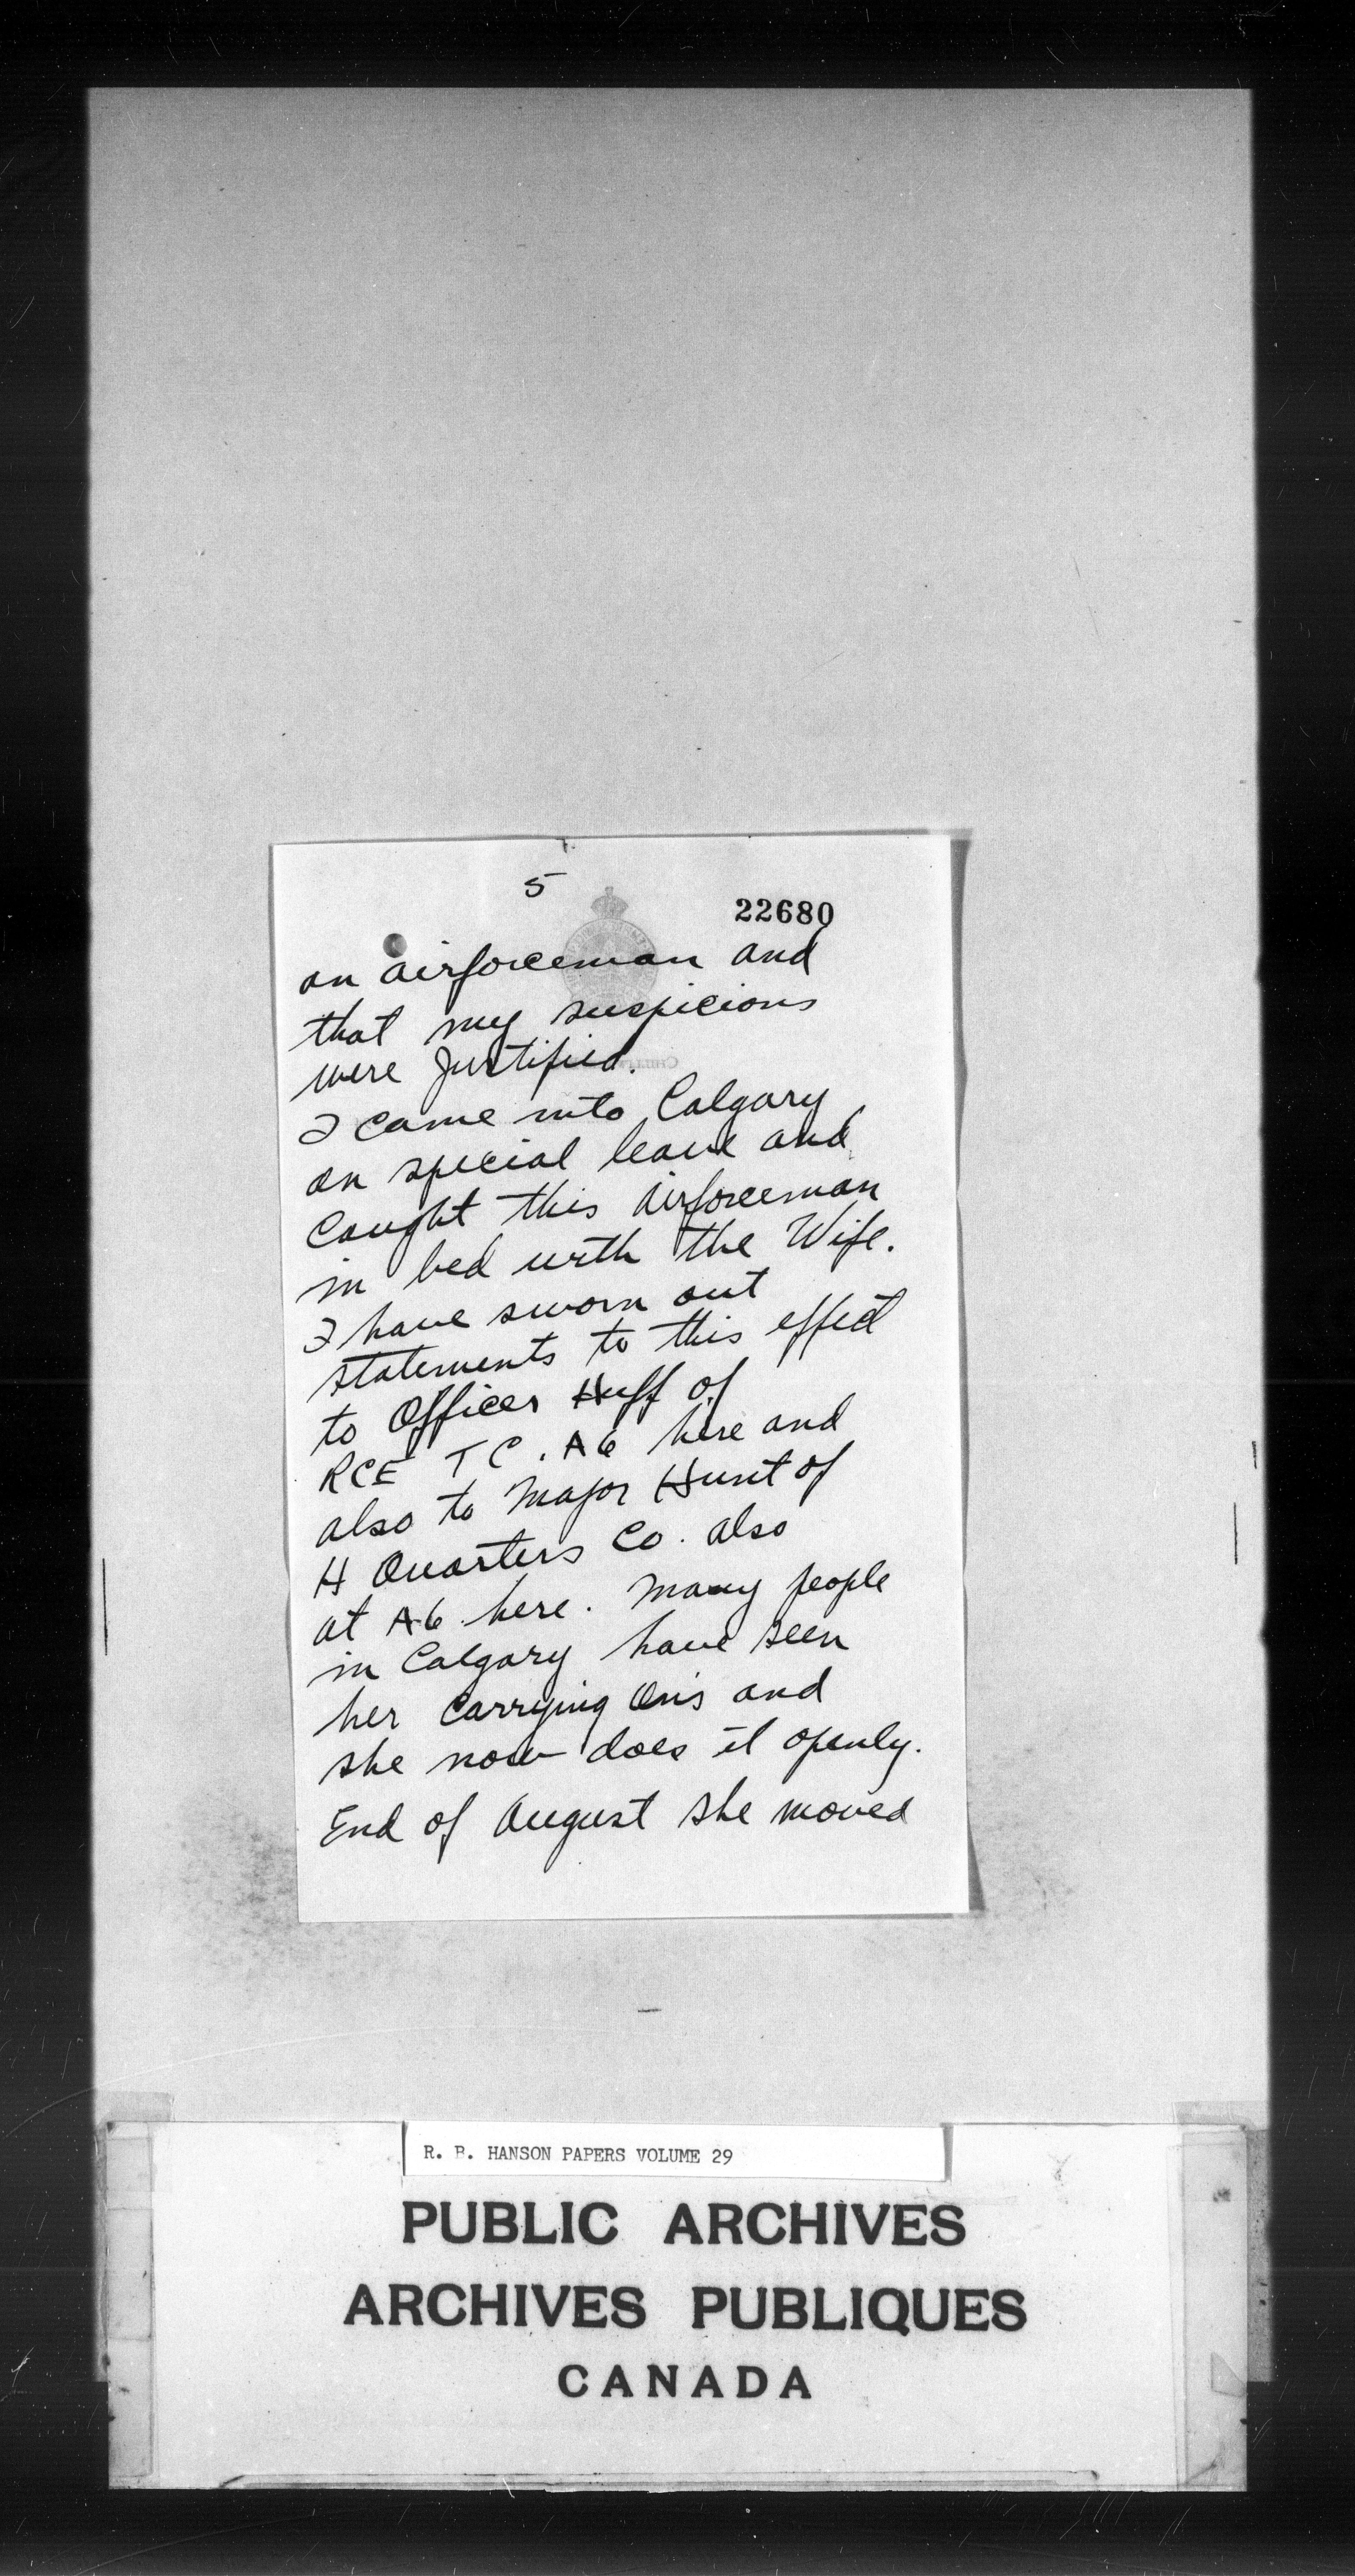 5
22680
an airforceman and
that my suspicions
were Justified.
I came into Calgary
on special leave and
Caught this Airforceman
in bed with the Wife.
I have sworn out
statements to this effect
to Officer Huff of
RCE T C. A6 here and
also to Major Hunt of
H Quarters Co. also
at A6 here. Many people
in Calgary have seen
her Carrying Ons and
she now does it openly.
End of August she moved
R. B. HANSON PAPERS VOLUME 29
PUBLIC ARCHIVES
ARCHIVES PUBLIQUES
CANADA